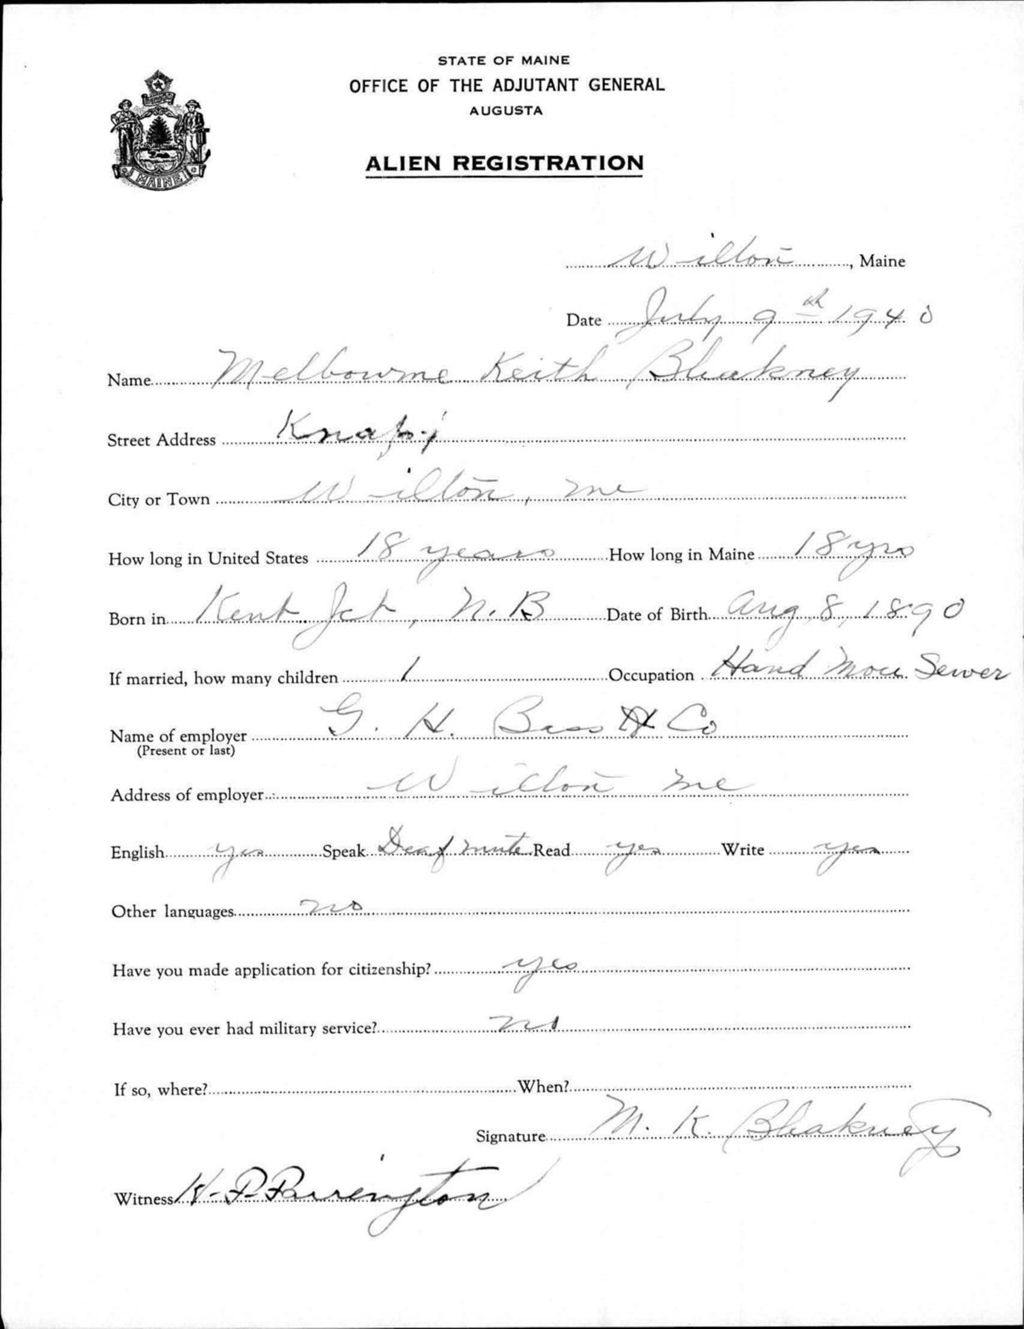 STATE OF MAINE
OFFICE OF THE ADJUTANT GENERAL
AUGUSTA
ALIEN REGISTRATION
MAINE
Wilton, Maine
Date July 9th 1940
Name Melbourne Keith Bleakney
Street Address
City or Town Wilton, Me
How long in United States 18 years How long in Maine 18 yrs
Born in Kent Jct, N.B Date of Birth Aug 8, 1890
If married, how many children 1 Occupation Hand Sewer
Name of employer G. H. Bass & Co
(Present or last)
Address of employer Wilton Me
English yes Speak Deaf mute Read yes Write yes
Other languages no
Have you made application for citizenship? yes
Have you ever had military service? no
If so, where? When?
Signature M. K. Bleakney
Witness H. P. Farrington